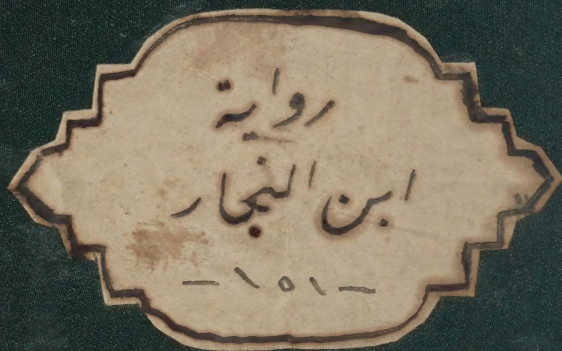 رواية
ابن النجار
- ١٥١ -